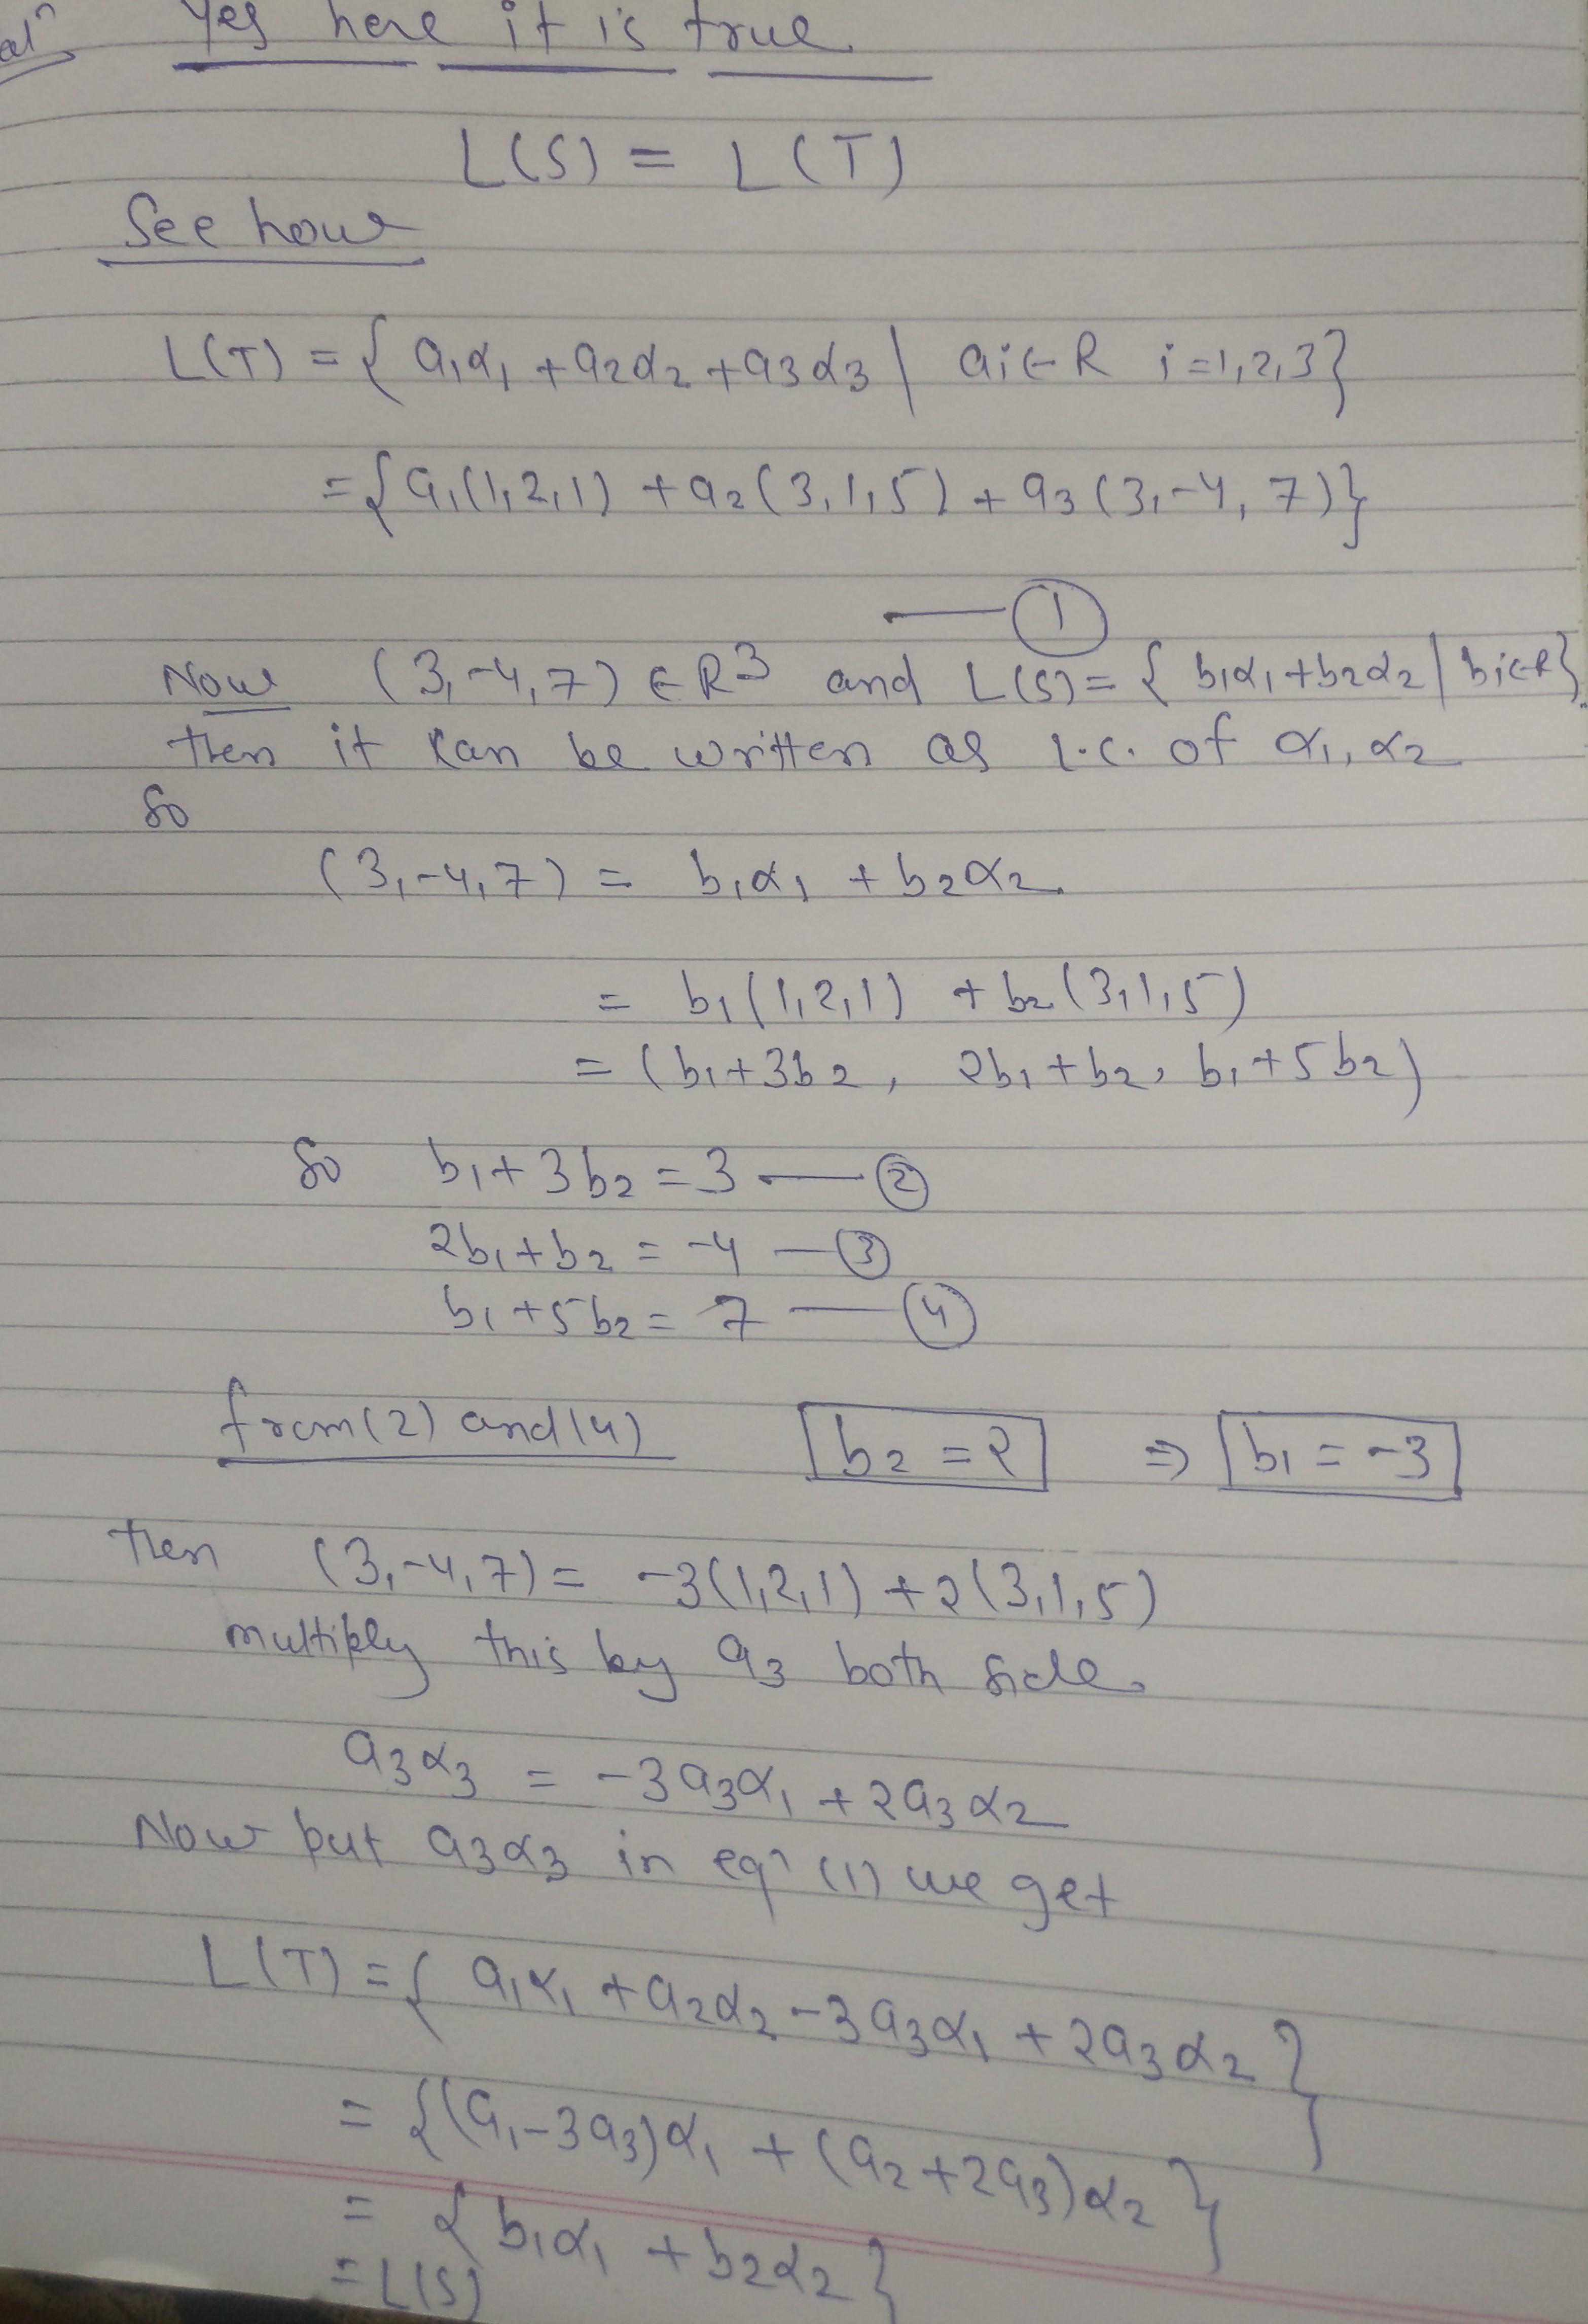 Yes here it is true
L(S) = L(T)
See how
L(T) = { a₁α₁ + a₂α₂ + a₃α₃ | aᵢ ∈ R i = 1, 2, 3}
= { a₁(1,2,1) + a₂(3,1,5) + a₃(3,-4,7)}
— ①
Now (3,-4,7) ∈ R³ and L(S) = { b₁α₁ + b₂α₂ | bᵢ∈R}
then it can be written as l.c. of α₁, α₂
So
(3,-4,7) = b₁α₁ + b₂α₂
= b₁(1,2,1) + b₂(3,1,5)
= (b₁+3b₂, 2b₁+b₂, b₁+5b₂)
So b₁+3b₂ = 3 — ②
2b₁+b₂ = -4 — ③
b₁+5b₂ = 7 — ④
from (2) and (4) b₂ = 2 ⇒ b₁ = -3
Then (3,-4,7) = -3(1,2,1) + 2(3,1,5)
multiply this by a₃ both side
a₃α₃ = -3a₃α₁ + 2a₃α₂
Now put a₃α₃ in eqⁿ (1) we get
L(T) = { a₁α₁ + a₂α₂ - 3a₃α₁ + 2a₃α₂ }
= {(a₁-3a₃)α₁ + (a₂+2a₃)α₂ }
= { b₁α₁ + b₂α₂ }
= L(S)